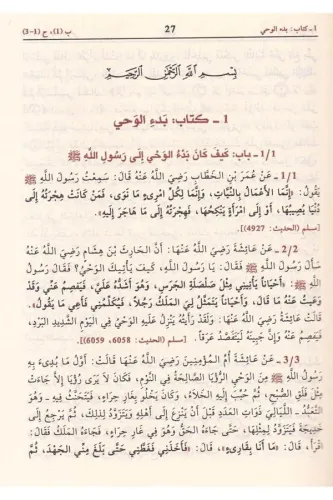 1 ـ كتاب: بدء الوحي
27
ب (1)، ح (1-3)
بِسْمِ اللَّهِ الرَّحْمَنِ الرَّحِيمِ
1 ـ كتاب: بَدءِ الوَحي
1/1 ـ باب: كَيْفَ كَانَ بَدْءُ الوَحْيِ إِلَى رَسُولِ اللَّهِ ﷺ
1/1 ـ عَنْ عُمَرَ بْنِ الخَطَّابِ رَضِيَ اللَّهُ عَنْهُ قَالَ: سَمِعْتُ رَسُولَ اللَّهِ
ﷺ يَقُولُ: «إِنَّمَا الأَعْمَالُ بِالنِّيَّاتِ، وَإِنَّمَا لِكُلِّ امْرِىءٍ مَا نَوَى، فَمَنْ كَانَتْ هِجْرَتُهُ إِلَى
دُنْيَا يُصِيبُهَا، أَوْ إِلَى امْرَأَةٍ يَنْكِحُهَا، فَهِجْرَتُهُ إِلَى مَا هَاجَرَ إِلَيْهِ».
[مسلم (الحديث: 4927)].
2/2 ـ عَنْ عَائِشَةَ رَضِيَ اللَّهُ عَنْهَا: أَنَّ الحَارِثَ بْنَ هِشَامٍ رَضِيَ اللَّهُ عَنْهُ
سَأَلَ رَسُولَ اللَّهِ ﷺ فَقَالَ: يَا رَسُولَ اللَّهِ، كَيْفَ يَأْتِيكَ الوَحْيُ؟ فَقَالَ رَسُولُ
اللَّهِ ﷺ: «أَحْيَاناً يَأْتِينِي مِثْلَ صَلْصَلَةِ الجَرَسِ، وَهُوَ أَشَدُّهُ عَلَيَّ، فَيَفْصِمُ عَنِّي وَقَدْ
وَعَيْتُ عَنْهُ مَا قَالَ، وَأَحْيَاناً يَتَمَثَّلُ لِيَ المَلَكُ رَجُلاً، فَيُكَلِّمُنِي فَأَعِي مَا يَقُولُ».
قَالَتْ عَائِشَةُ رَضِيَ اللَّهُ عَنْهَا: وَلَقَدْ رَأَيْتُهُ يَنْزِلُ عَلَيْهِ الوَحْيُ فِي اليَوْمِ الشَّدِيدِ البَرْدِ،
فَيَفْصِمُ عَنْهُ وَإِنَّ جَبِينَهُ لَيَتَفَصَّدُ عَرَقاً. [مسلم (الحديث: 6058، 6059)].
3/3 ـ عَنْ عَائِشَةَ أُمِّ المُؤْمِنِينَ رَضِيَ اللَّهُ عَنْهَا قَالَتْ: أَوَّلُ مَا بُدِىءَ بِهِ
رَسُولُ اللَّهِ ﷺ مِنَ الوَحْيِ الرُّؤْيَا الصَّالِحَةُ فِي النَّوْمِ، فَكَانَ لَا يَرَى رُؤْيَا إِلَّا جَاءَتْ
مِثْلَ فَلَقِ الصُّبْحِ، ثُمَّ حُبِّبَ إِلَيْهِ الخَلَاءُ، وَكَانَ يَخْلُو بِغَارِ حِرَاءٍ، فَيَتَحَنَّثُ فِيهِ ـ وَهُوَ
التَّعَبُّدُ ـ اللَّيَالِيَ ذَوَاتِ العَدَدِ قَبْلَ أَنْ يَنْزِعَ إِلَى أَهْلِهِ وَيَتَزَوَّدُ لِذَلِكَ، ثُمَّ يَرْجِعُ إِلَى
خَدِيجَةَ فَيَتَزَوَّدُ لِمِثْلِهَا، حَتَّى جَاءَهُ الحَقُّ وَهُوَ فِي غَارِ حِرَاءٍ، فَجَاءَهُ المَلَكُ فَقَالَ:
اقْرَأْ، قَالَ: «مَا أَنَا بِقَارِىءٍ»، قَالَ: «فَأَخَذَنِي فَغَطَّنِي حَتَّى بَلَغَ مِنِّي الجَهْدَ، ثُمَّ